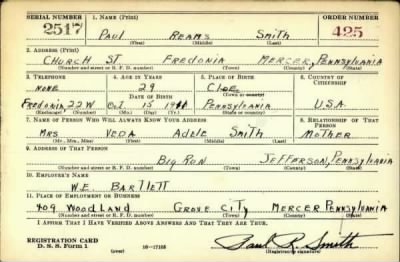 SERIAL NUMBER 1. NAME (Print) ORDER NUMBER
2517 PAUL REAMS SMITH 425
(First) (Middle) (Last)
2. ADDRESS (Print)
CHURCH ST. FREDONIA MERCER, PENNSYLVANIA
(Number and street or R. F. D. number) (Town) (County) (State)
3. TELEPHONE 4. AGE IN YEARS 5. PLACE OF BIRTH 6. COUNTRY OF CITIZENSHIP
NONE 29
DATE OF BIRTH (Town or county)
FREDONIA, 22W OCT. 15 PENNSYLVANIA U.S.A.
(Exchange) (Number) (Mo.) (Day) (Yr.) (State or country)
7. NAME OF PERSON WHO WILL ALWAYS KNOW YOUR ADDRESS 8. RELATIONSHIP OF THAT PERSON
MRS VEDA ADELE SMITH MOTHER
(Mr., Mrs., Miss) (First) (Middle) (Last)
9. ADDRESS OF THAT PERSON
BIG RUN JEFFERSON, PENNSYLVANIA
(Number and street or R. F. D. number) (Town) (County) (State)
10. EMPLOYER'S NAME
W.E. BARTLETT
11. PLACE OF EMPLOYMENT OR BUSINESS
409 WOODLAND GROVE CITY MERCER PENNSYLVANIA
(Number and street or R. F. D. number) (Town) (County) (State)
I AFFIRM THAT I HAVE VERIFIED ABOVE ANSWERS AND THAT THEY ARE TRUE.
REGISTRATION CARD
D. S. S. Form 1 (over) 16—17105 Paul R. Smith